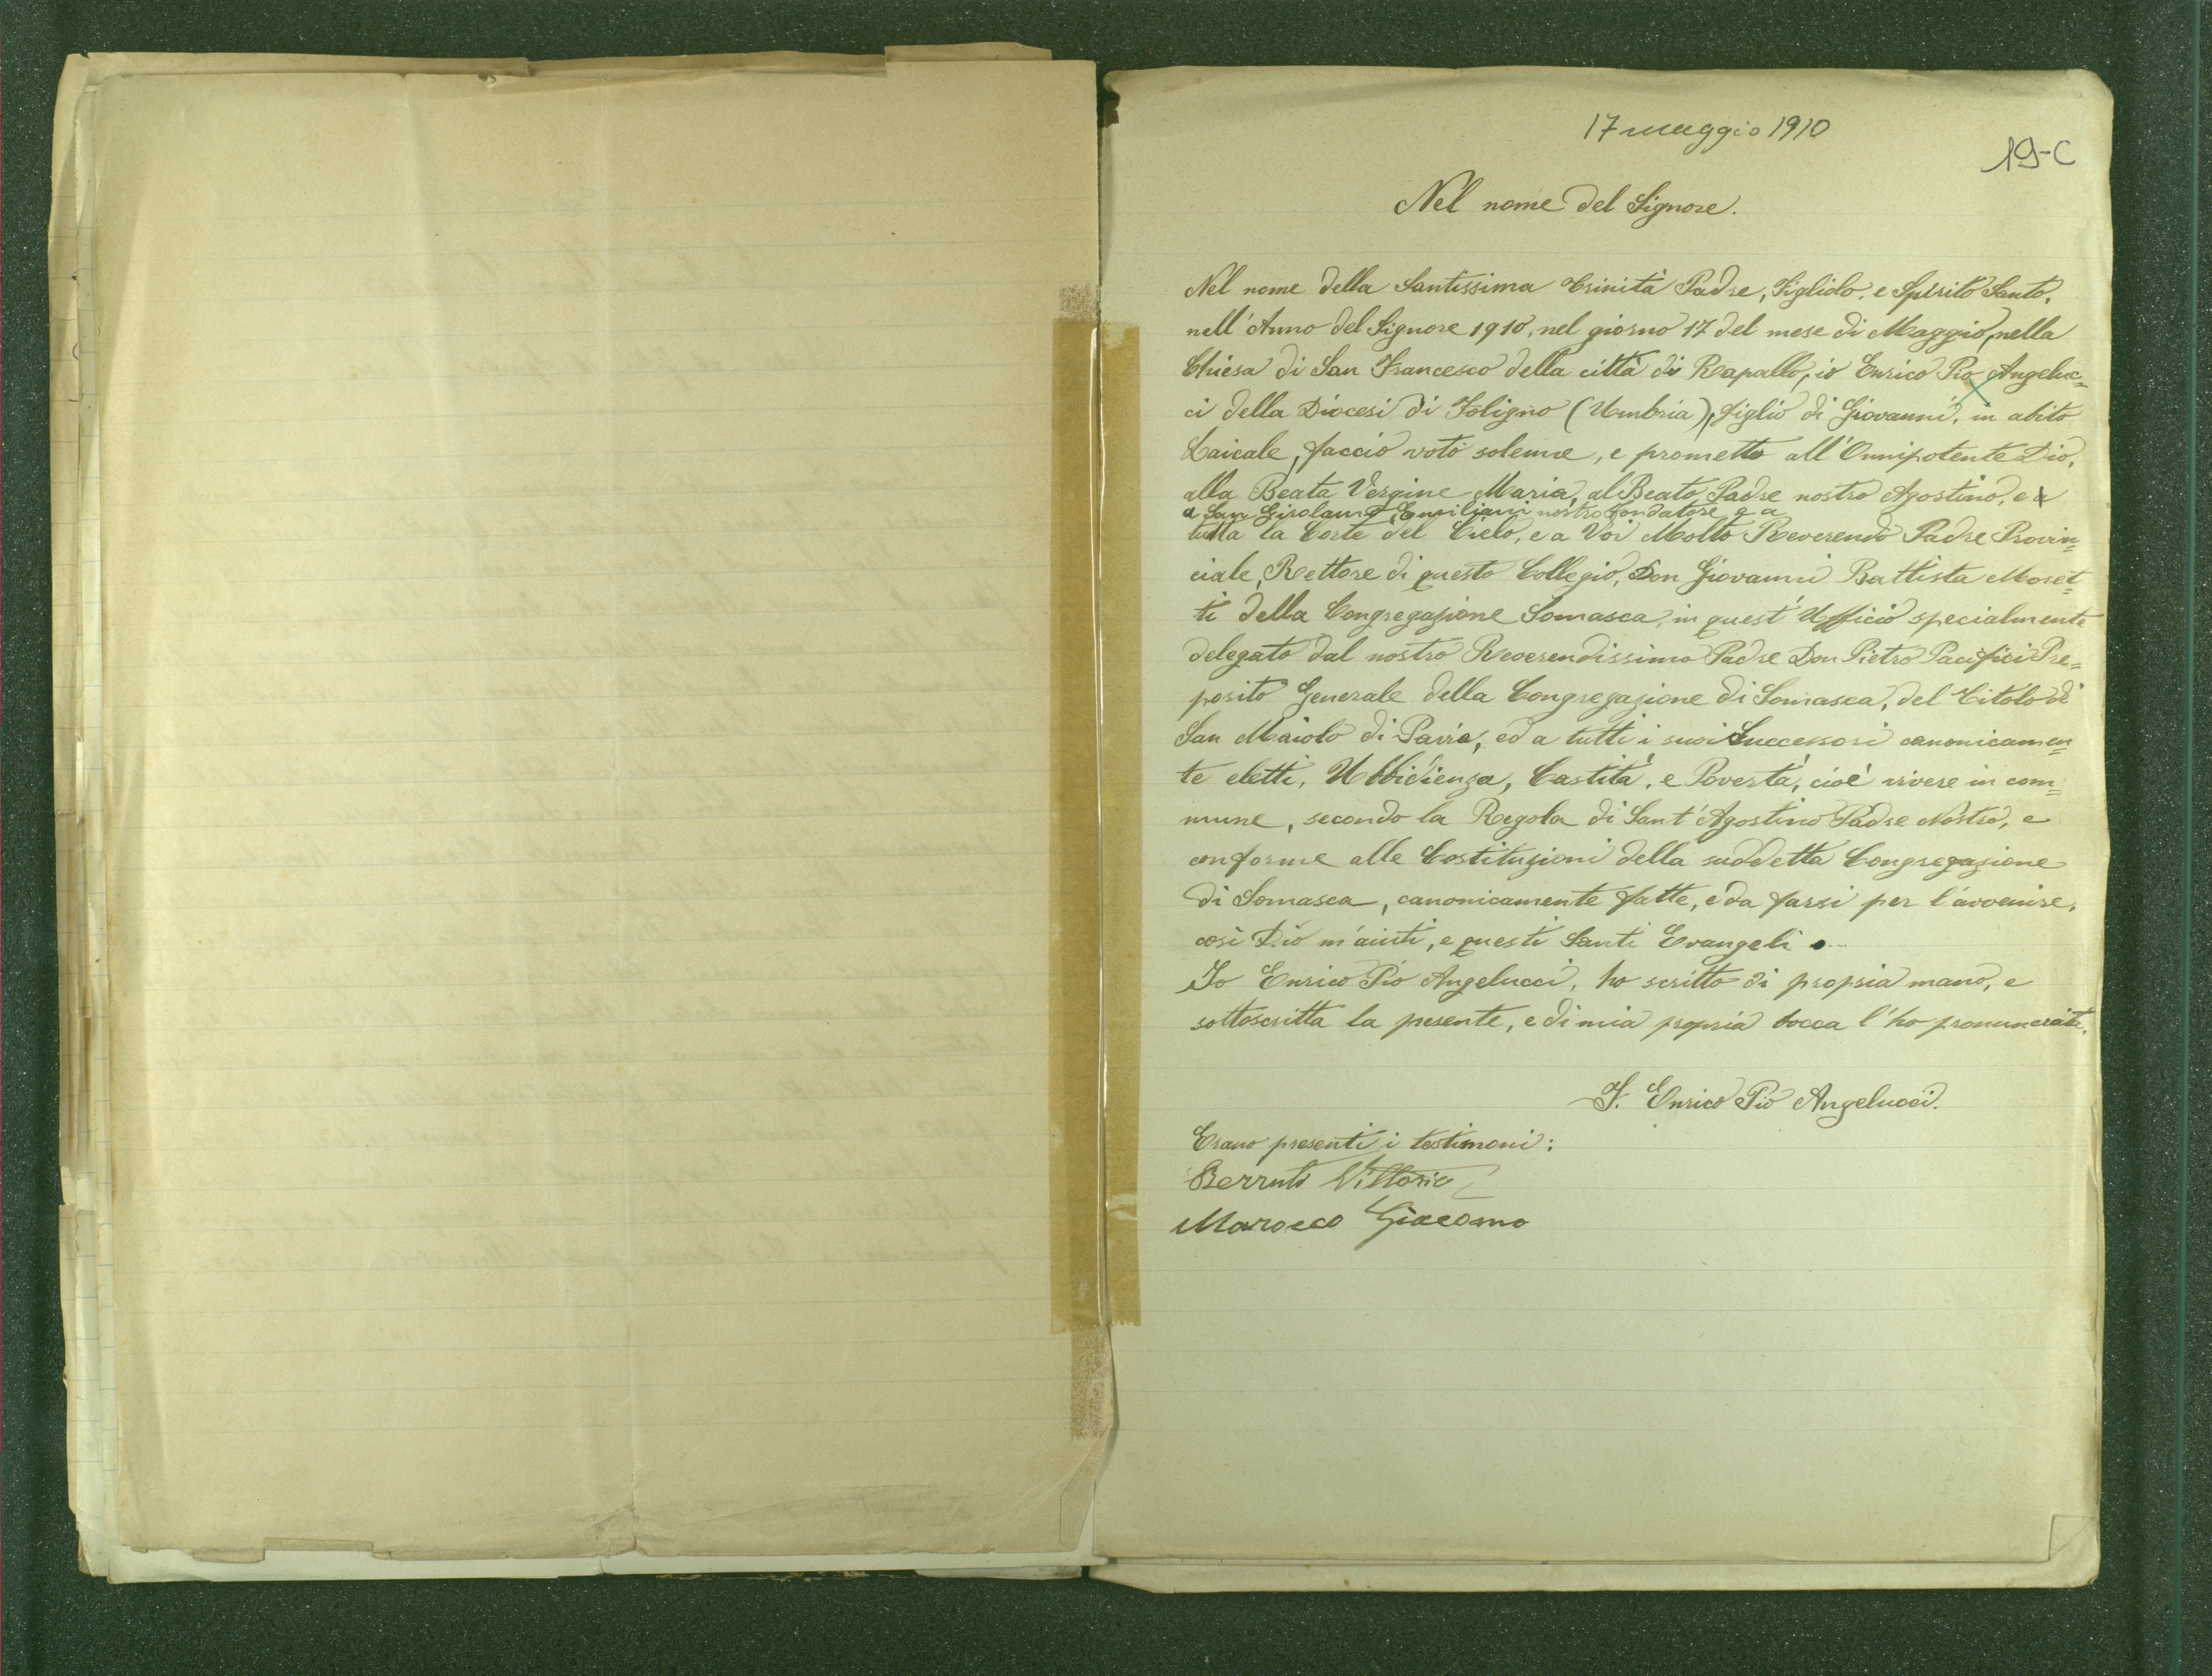 17 maggio 1910
19-C
Nel nome del Signore.
Nel nome della Santissima Trinità Padre, Figliolo, e Spirito Santo,
nell'Anno del Signore 1910, nel giorno 17 del mese di Maggio, nella
Chiesa di San Francesco della città di Rapallo, io Enrico Pio Angeluc=
ci della Diocesi di Foligno (Umbria), figlio di Giovanni, in abito
Laicale, faccio voto solenne, e prometto all'Onnipotente Dio,
alla Beata Vergine Maria, al Beato Padre nostro Agostino, e a
a San Girolamo Emiliani nostro fondatore e a
tutta la Corte del Cielo, e a Voi Molto Reverendo Padre Provin=
ciale, Rettore di questo Collegio, Don Giovanni Battista Moret=
ti della Congregazione Somasca, in quest'Ufficio specialmente
delegato dal nostro Reverendissimo Padre Don Pietro Pacifici Pre=
posito Generale della Congregazione di Somasca, del Titolo di
San Maiolo di Pavia, ed a tutti i suoi Successori canonicamen=
te eletti, Ubbidienza, Castità, e Povertà, cioè vivere in com=
mune, secondo la Regola di Sant'Agostino Padre Nostro, e
conforme alle Costituzioni della suddetta Congregazione
di Somasca, canonicamente fatte, e da farsi per l'avvenire,
così Dio m'aiuti, e questi Santi Evangeli.
Io Enrico Pio Angelucci, ho scritto di propria mano, e
sottoscritta la presente, e di mia propria bocca l'ho pronunciata.
F. Enrico Pio Angelucci.
Erano presenti i testimoni:
Berruti Vittorio
Marocco Giacomo